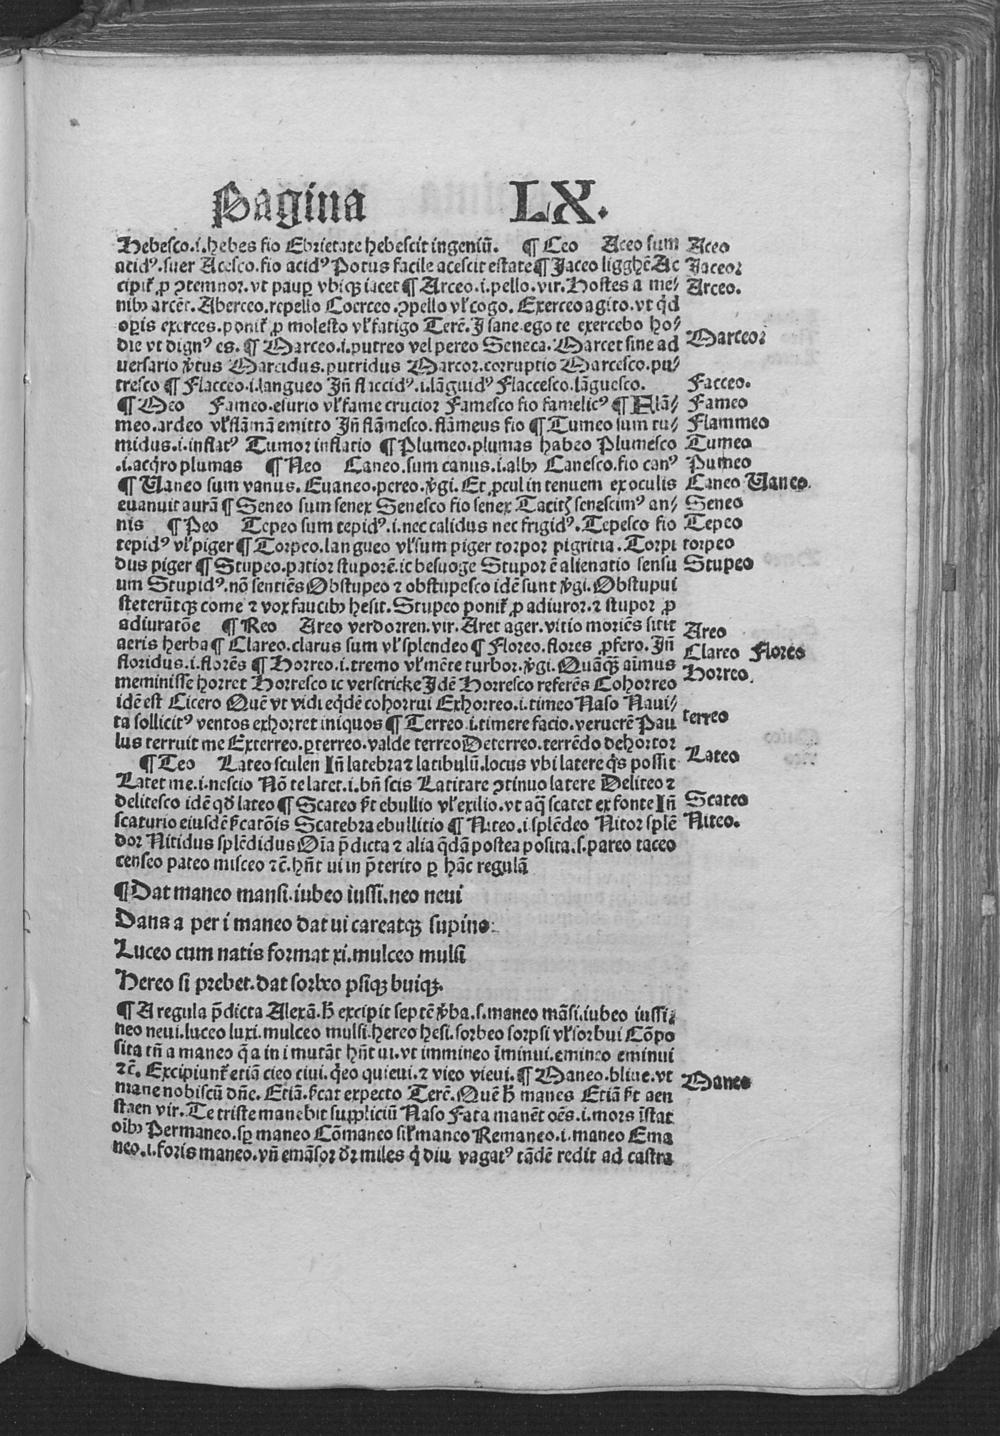 Pagina LX.
Hebesco.i.hebes fio Ebrietate hebescit ingeniū. ¶ Ceo Aceo sum Aceo
acidꝰ.suer Acesco.fio acidꝰ Potus facile acescit estate ¶ Jaceo ligghē Ac Jaceo:
cipit̄ ꝓ ꝯtemnor.vt pauꝑ vbiqꝫ iacet ¶ Arceo.i.pello.vir.Hostes a me⸗ Arceo.
nibꝫ arcēt.Aberceo.repello Coerceo.ꝯpello vl̓ cogo. Exerceo agito.vt qͥd
oꝑis exerces.ponit̄ ꝓ molesto vl̓ fatigo Terē.J sane ego te exercebo ho⸗
die vt dignꝰ es. ¶ Marceo.i.putreo vel pereo Seneca. Marcet sine ad Marceo:
uersario v̓tus Marcidus.putridus Marcor.corruptio Marcesco.pu⸗
tresco ¶ Flacceo.i.langueo Jn̄ flaccidꝰ.i.lāguidꝰ Flaccesco.lāguesco. Facceo.
¶ Meo Fameo.esurio vl̓ fame crucior Famesco fio famelicꝰ ¶ Flā⸗ Fameo
meo.ardeo vl̓ flāmā emitto Jn̄ flāmesco.flāmeus fio ¶ Tumeo sum tu⸗ Flammeo
midus.i.inflatꝰ Tumor inflatio ¶ Plumeo.plumas habeo Plumesco Tumeo
.i.acq̄ro plumas ¶ Neo Caneo.sum canus.i.albꝰ Canesco.fio canꝰ Pumeo
¶ Vaneo sum vanus. Evaneo.pereo.v̓gi. Et ꝓcul in tenuem ex oculis Caneo Vaneo.
euanuit aurā ¶ Seneo sum senex Senesco fio senex Tacitꝰ senescimꝰ an⸗ Seneo
nis ¶ Peo Tepeo sum tepidꝰ.i.nec calidus nec frigidꝰ.Tepesco fio Tepeo
tepidꝰ vl̓ piger ¶ Torpeo.langueo vl̓ sum piger torpor pigritia.Torpi torpeo
dus piger ¶ Stupeo.patior stuporē.ic besuoge Stupor ē alienatio sensu Stupeo
um Stupidꝰ.nō sentiēs Obstupeo ⁊ obstupesco idē sunt v̓gi.Obstupui
steterūtqꝫ come ⁊ vox faucibꝫ hesit.Stupeo ponit̄ ꝓ adiuror.⁊ stupor ꝓ
adiuratōe ¶ Reo Areo verdorren.vir.Aret ager.vitio moriēs sitit Areo
aeris herba ¶ Clareo.clarus sum vl̓ splendeo ¶ Floreo.flores ꝓfero.Jn̄ Clareo Floreo
floridus.i.florēs ¶ Horreo.i.tremo vl̓ mēte turbor.v̓gi.Quāqꝫ aīmus Horreo.
meminisse horret Horresco ic verscricke Jdē Horresco referēs Cohorreo
idē est Cicero Quē vt vidi eqͥdē cohorrui Exhorreo.i.timeo Naso Naui⸗
ta sollicitꝰ ventos exhorret iniquos ¶ Terreo.i.timere facio.veruerē Pau terreo
lus terruit me Exterreo.ꝑterreo.valde terreo Deterreo.terrēdo dehortor
¶ Teo Lateo sculen Jn̄ latebra ⁊ latibulū.locus vbi latere qͥs possit Lateo
Latet me.i.nescio Nō te latet.i.bn̄ scis Latitare ꝯtinuo latere Deliteo ⁊
delitesco idē qd̓ lateo ¶ Scateo fit̄ ebullio vl̓ exilio.vt aqͣ scatet ex fonte Jn̄ Scateo
scaturio eiusdē fͥcatōis Scatebra ebullitio ¶ Niteo.i.splēdeo Nitor splē Niteo.
dor Nitidus splēdidus Oīa p̄dicta ⁊ alia qͥdā postea posita.s.pareo taceo
censeo pateo misceo ⁊c̄.hn̄t ui in p̄terito ꝑ hāc regulā
¶ Dat maneo mansi.iubeo iussi.neo neui
Dans a per i maneo dat ui careatqꝫ supino.
Luceo cum natis format xi.mulceo mulsi
Hereo si prebet.dat sorbeo psiqꝫ buiqꝫ.
¶ A regula p̄dicta Alexā.hͥ excipit septē v̓ba.s.maneo māsi.iubeo iussi:
neo neui.luceo luxi.mulceo mulsi.hereo hesi.sorbeo sorpsi vl̓ sorbui Cōpo
sita tn̄ a maneo qͣ a in i mutāt hn̄t ui.vt immineo īminui.emineo eminui
⁊c̄. Excipiunt̄ etiā cieo ciui.qͥeo quieui.⁊ vieo vieui. ¶ Maneo.bliue.vt Maneo
mane nobiscū dn̄e. Etiā.fͥcat expecto Terē.Quē hͥ manes Etiā fit̄ aen
staen vir.Te triste manebit suppliciū Naso Fata manēt oēs.i.mors īstat
oībꝫ Permaneo.sꝑ maneo Cōmaneo sil̓ maneo Remaneo.i.maneo Ema
neo.i.foris maneo.vn̄ emāsor dr̄ miles qͥ diu vagatꝰ tādē redit ad castra